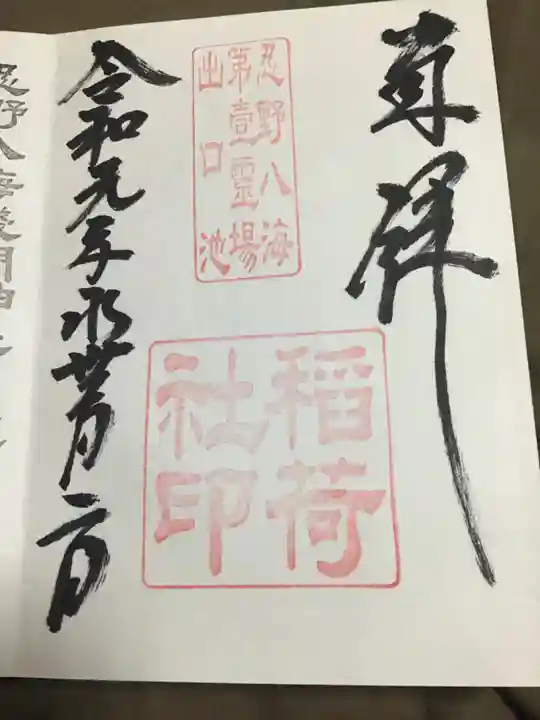 奉拝
忍野八海
第壹靈場
出口池
稲荷
社印
令和元年水無月二日
忍野八海